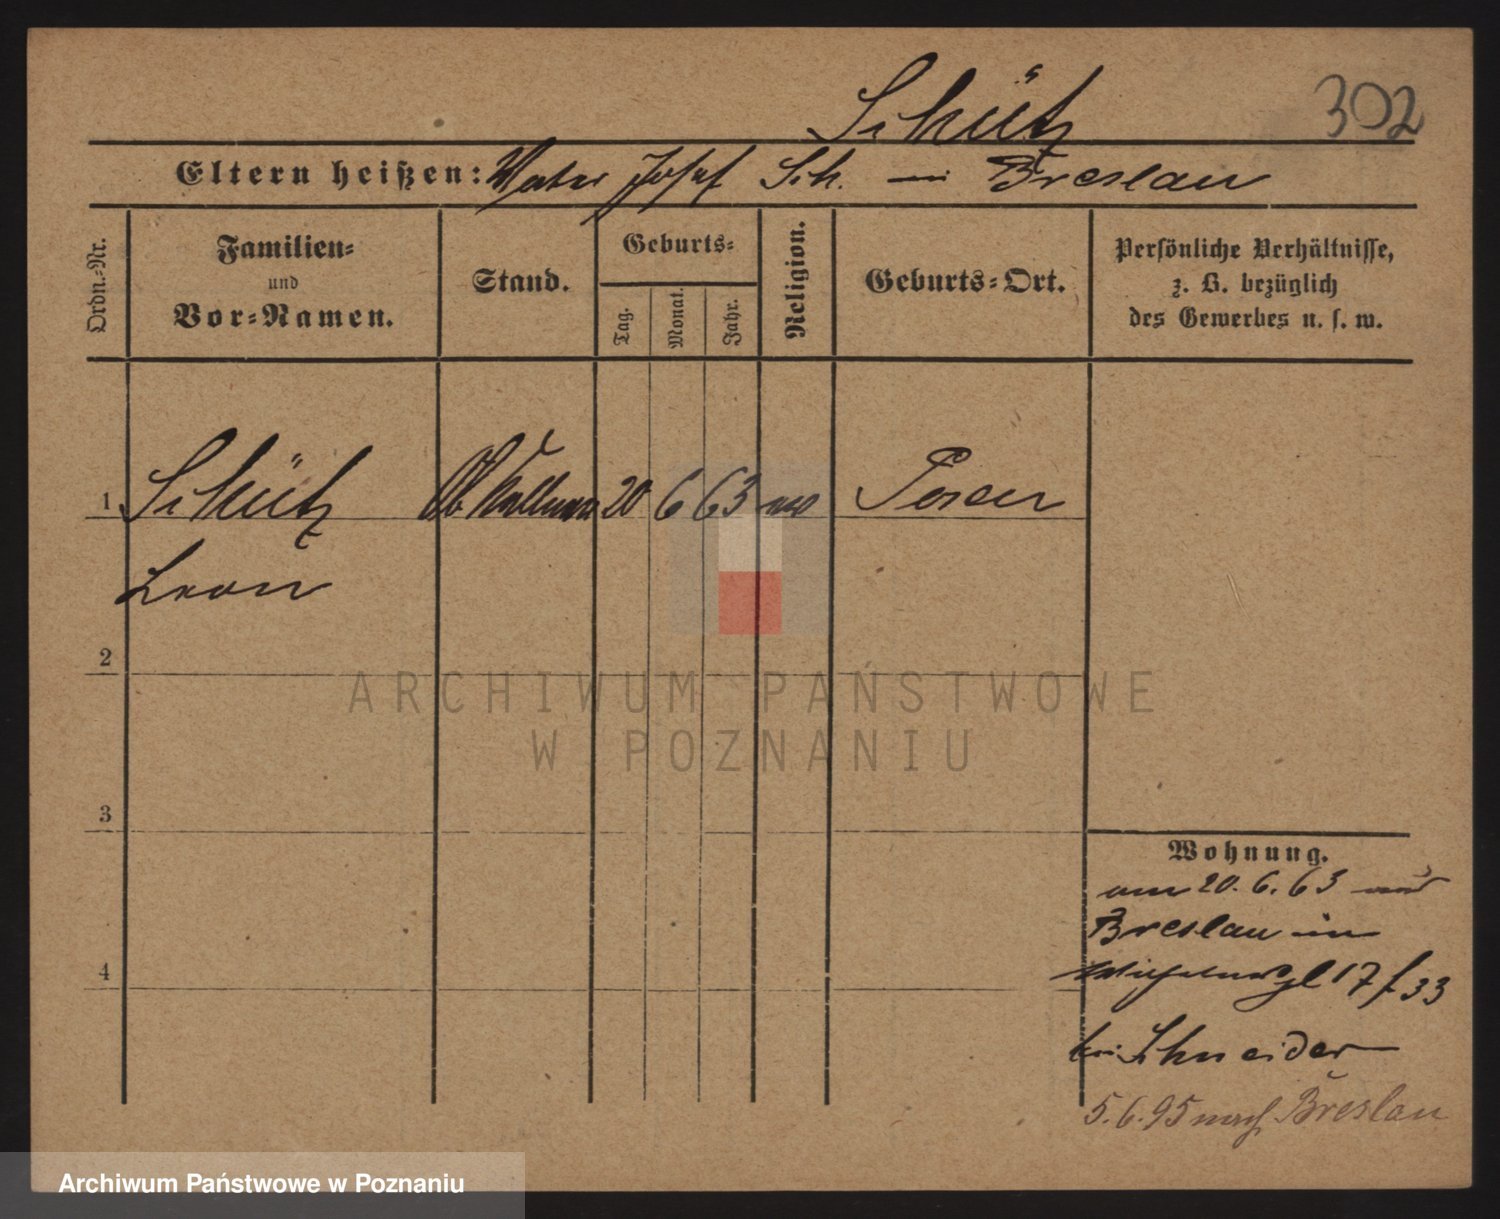 302
Schütz
Eltern heißen: Vater Josef Sch. in Breslau
Ordn.-Nr.
Familien-
und
Vor-Namen.
Stand.
Geburts-
Tag.
Monat.
Jahr.
Religion.
Geburts-Ort.
Persönliche Verhältnisse,
z. B. bezüglich
des Gewerbes u. s. w.
1 Schütz 20 6 63 Posen
Leon
2
3
4
ARCHIWUM PAŃSTWOWE
W POZNANIU
Wohnung.
am 20. 6. 63
Breslau in
17 / 33
bei Schneider
5. 6. 95 nach Breslau
Archiwum Państwowe w Poznaniu